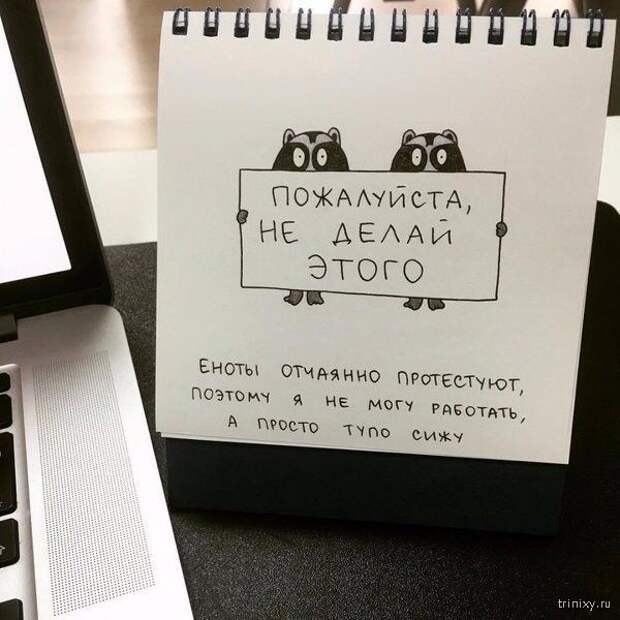 ПОЖАЛУЙСТА,
НЕ ДЕЛАЙ
ЭТОГО
ЕНОТЫ ОТЧАЯННО ПРОТЕСТУЮТ,
ПОЭТОМУ Я НЕ МОГУ РАБОТАТЬ,
А ПРОСТО ТУПО СИЖУ
trinixy.ru